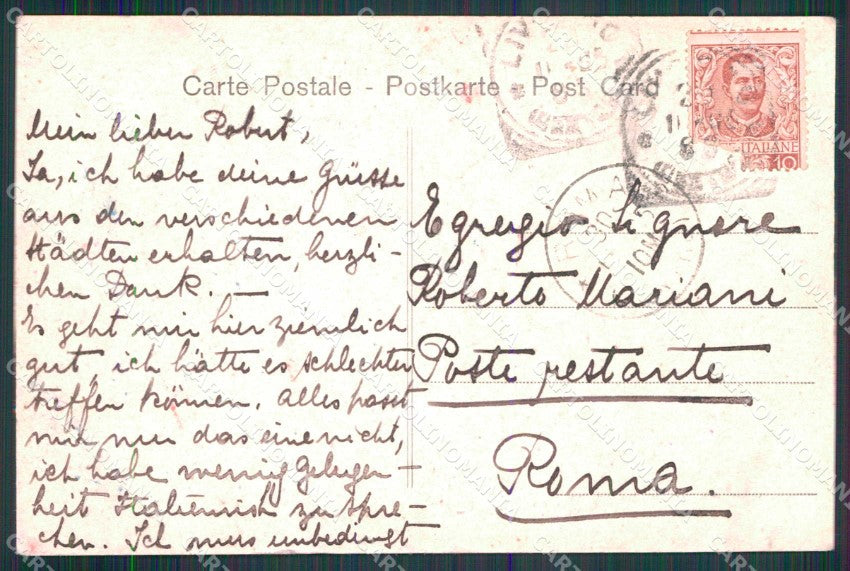 Carte Postale - Postkarte - Post Card
Mein lieber Robert,
Ja, ich habe deine Grüsse
aus den verschiedenen
Städten erhalten, herzli-
chen Dank. —
Es geht mir hier ziemlich
gut, ich hätte es schlechter
treffen können. Alles passt
mir nur das eine nicht,
ich habe wenig Gelegen-
heit Italienisch zu spre-
chen. Ich muss unbedingt
Egregio Signore
Roberto Mariani
Poste restante
Roma.
ITALIANE
10
LIVORNO
ROMA
CARTOLINOMANIA